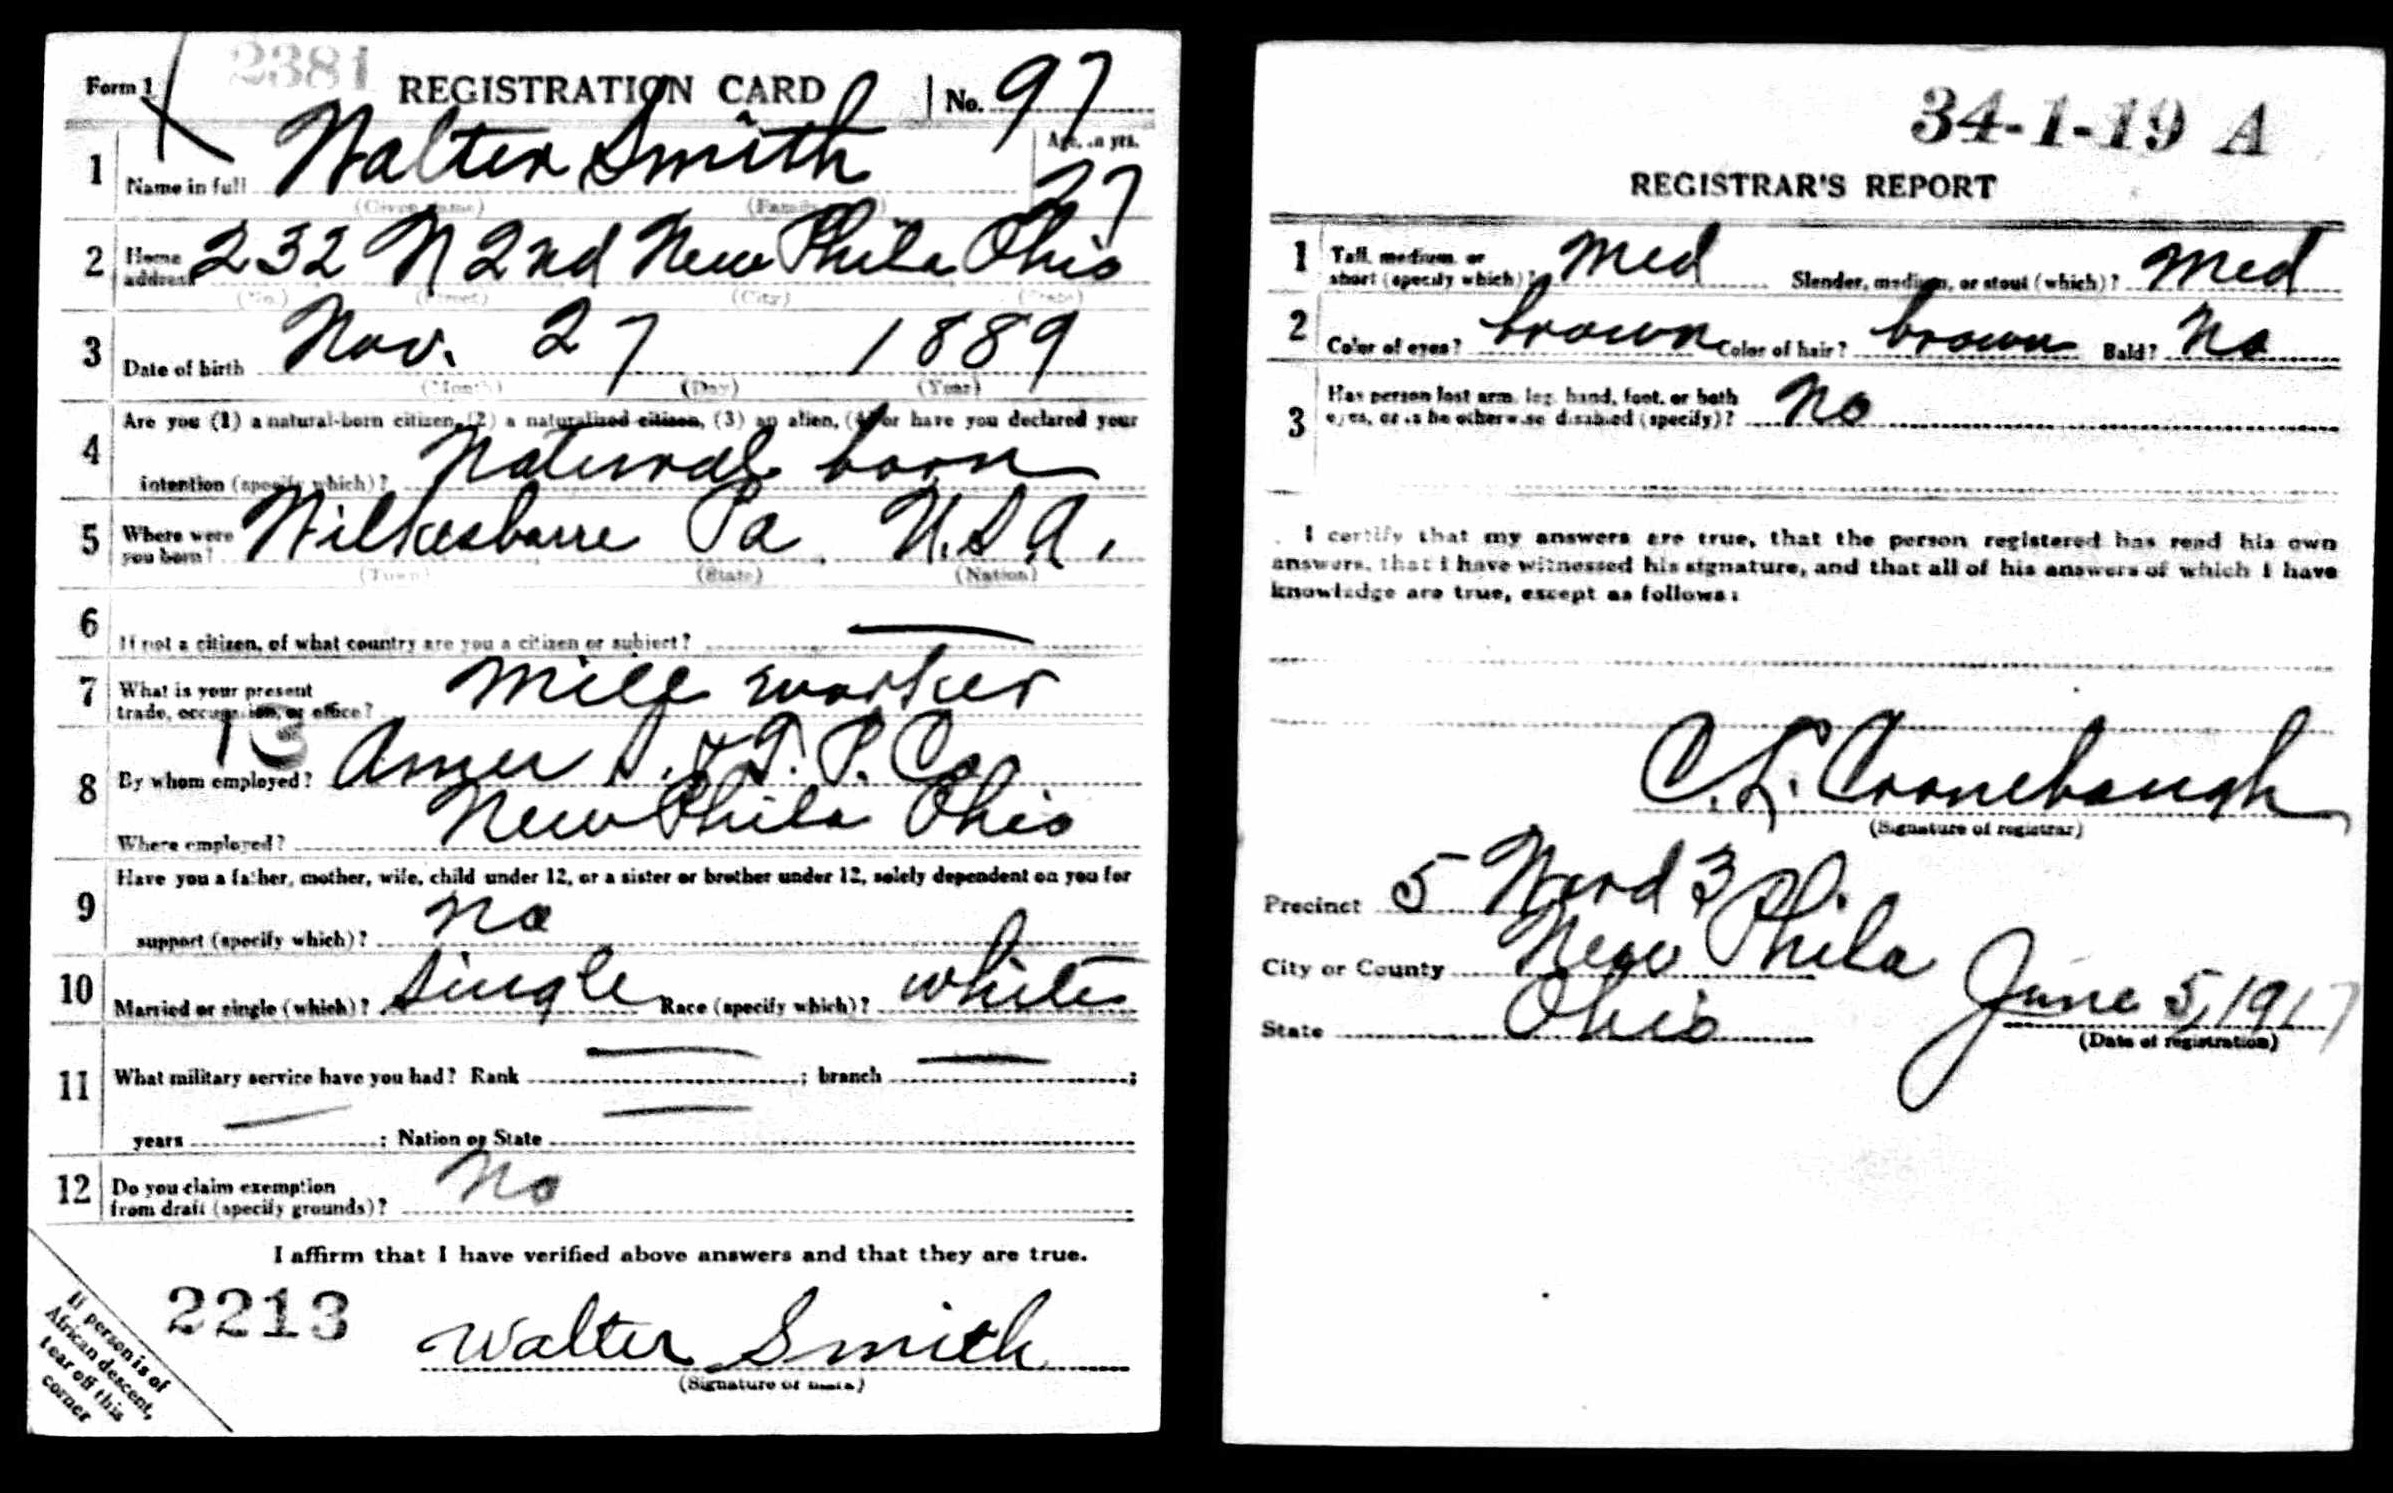 2381
Form 1 REGISTRATION CARD No. 97
1 Name in full Walter Smith Age, in yrs. 27
(Given name) (Family name)
2 Home address 232 N 2nd New Phila Ohio
(No.) (Street) (City) (State)
3 Date of birth Nov. 27 1889
(Month) (Day) (Year)
4 Are you (1) a natural-born citizen, (2) a naturalized citizen, (3) an alien, (4) or have you declared your
intention (specify which)? Natural born
5 Where were you born? Wilkesbarre Pa U.S.A.
(Town) (State) (Nation)
6 If not a citizen, of what country are you a citizen or subject?
7 What is your present
trade, occupation, or office? Mill worker
13
8 By whom employed? Amer S. & T. P. Co
Where employed? New Phila Ohio
9 Have you a father, mother, wife, child under 12, or a sister or brother under 12, solely dependent on you for
support (specify which)? No
10 Married or single (which)? Single Race (specify which)? white
11 What military service have you had? Rank ; branch ;
years ; Nation or State
12 Do you claim exemption
from draft (specify grounds)? No
I affirm that I have verified above answers and that they are true.
2213
Walter Smith
(Signature or mark)
If person is of
African descent,
tear off this
corner
34-1-19 A
REGISTRAR'S REPORT
1 Tall, medium, or
short (specify which)? Med Slender, medium, or stout (which)? Med
2 Color of eyes? brown Color of hair? brown Bald? No
3 Has person lost arm, leg, hand, foot, or both
eyes, or is he otherwise disabled (specify)? No
I certify that my answers are true, that the person registered has read his own
answers, that I have witnessed his signature, and that all of his answers of which I have
knowledge are true, except as follows:
C. L. Cronebaugh
(Signature of registrar)
Precinct 5 Ward 3 Ph.
City or County New Phila
State Ohio June 5, 1917
(Date of registration)